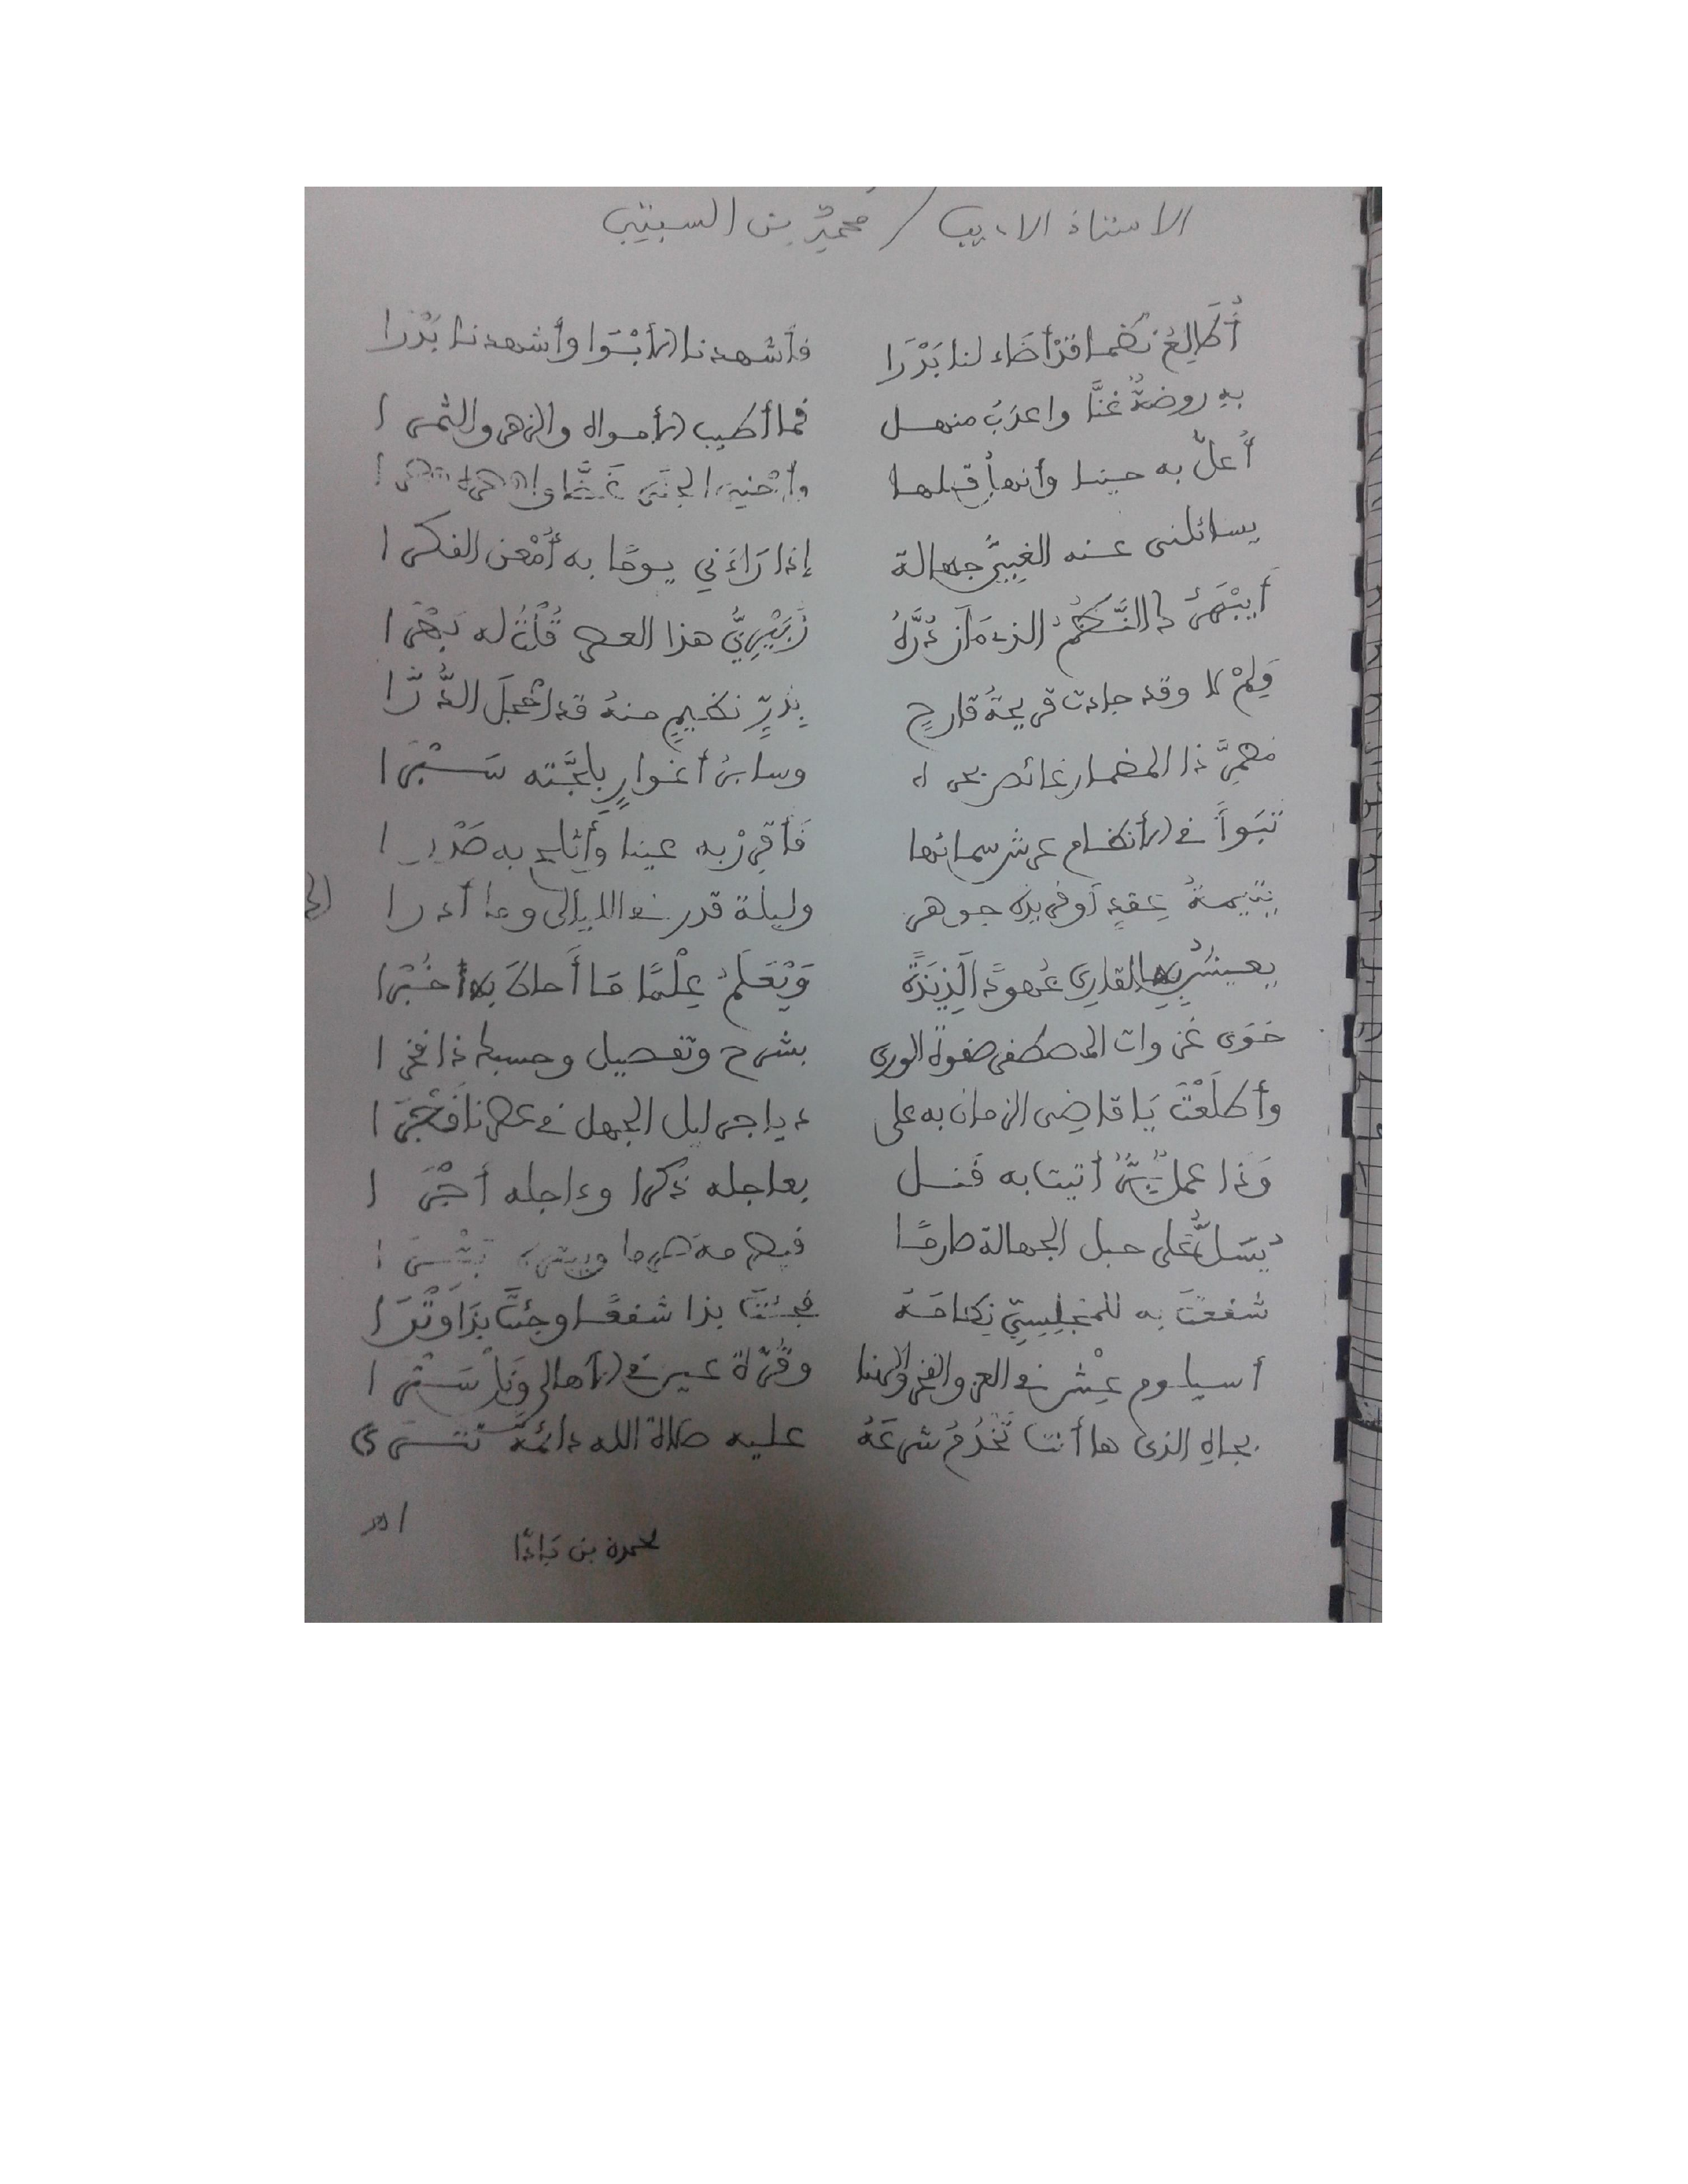 الاستاذ الاديب / محمد بن السبتي
أُطَالِعُ نظما قدْ أضَاء لنا بَدْرَا فأشهدنا الأبْوَا وأشهدنا بَدْرَا
به روضةٌ غنَّا واعذبُ منهل فما أطيب الأمواه والزهر والثمرا
أعلّ به حينا وأنهل قبلها وأجْنِي الجنَى غَضًّا
يسائلني عنه الغبيُّ جهالة إذا رَاءَني يومًا به أُمْعن الفكرا
أيبْهَى ذا النَّظْمُ الذي مَازَ دُرَّهُ زُبَيْرِيُّ هذا العصر قُلْتُ له بَهْرَا
وَلِمْ لا وقد جاءت قريحةُ قارحٍ بِدُرِّ نظيمٍ منهُ قد أخجلَ الدُّرَّا
ذا المضمار غائص بحره وسابر أغوارٍ بلجَّته سَبْرا
تبَوأَ في الأنظام عرش سمائها فَأقرِرْ به عينا وأثلج به صَدْرا
يتيمةُ عِقدٍ أو فريدة جوهر وليلة قدر في الليالي وما أدرا
القاري عُهودًا لَذِيذَةً وَيَعْلَمُ عِلْمًا مَا أَحاطَ به خُبْرا
حَوَى غزوات المصطفى صفوة الورى بشرح وتفصيل وحسبك ذا فخرا
وأطلَعْتَ يَا قاضِي الزمان به على دياجر ليل الجهل في عصرنا فَجْرَا
وَذا عملٌ بَرٌّ أتيتا به فنل بعاجله ذكرا وءاجله أجْرَا
يُسَلُّ على حبل الجهالة صارمًا
شفعتَ به للمجلسيِّ نِظامَهُ فجئتَ بذا شفعًا وجئتَ بذَا وَتْرَا
أسيلوم عِشْ في العز والفخر والهنا وقُرَّة عين في الأهالي وَنَلْ سَتْرا
بجاهِ الذي ها أنتَ تَخْدُمُ شرعَهُ عليه صلاة الله دائمة تترى
اهـ
لحمدة بن